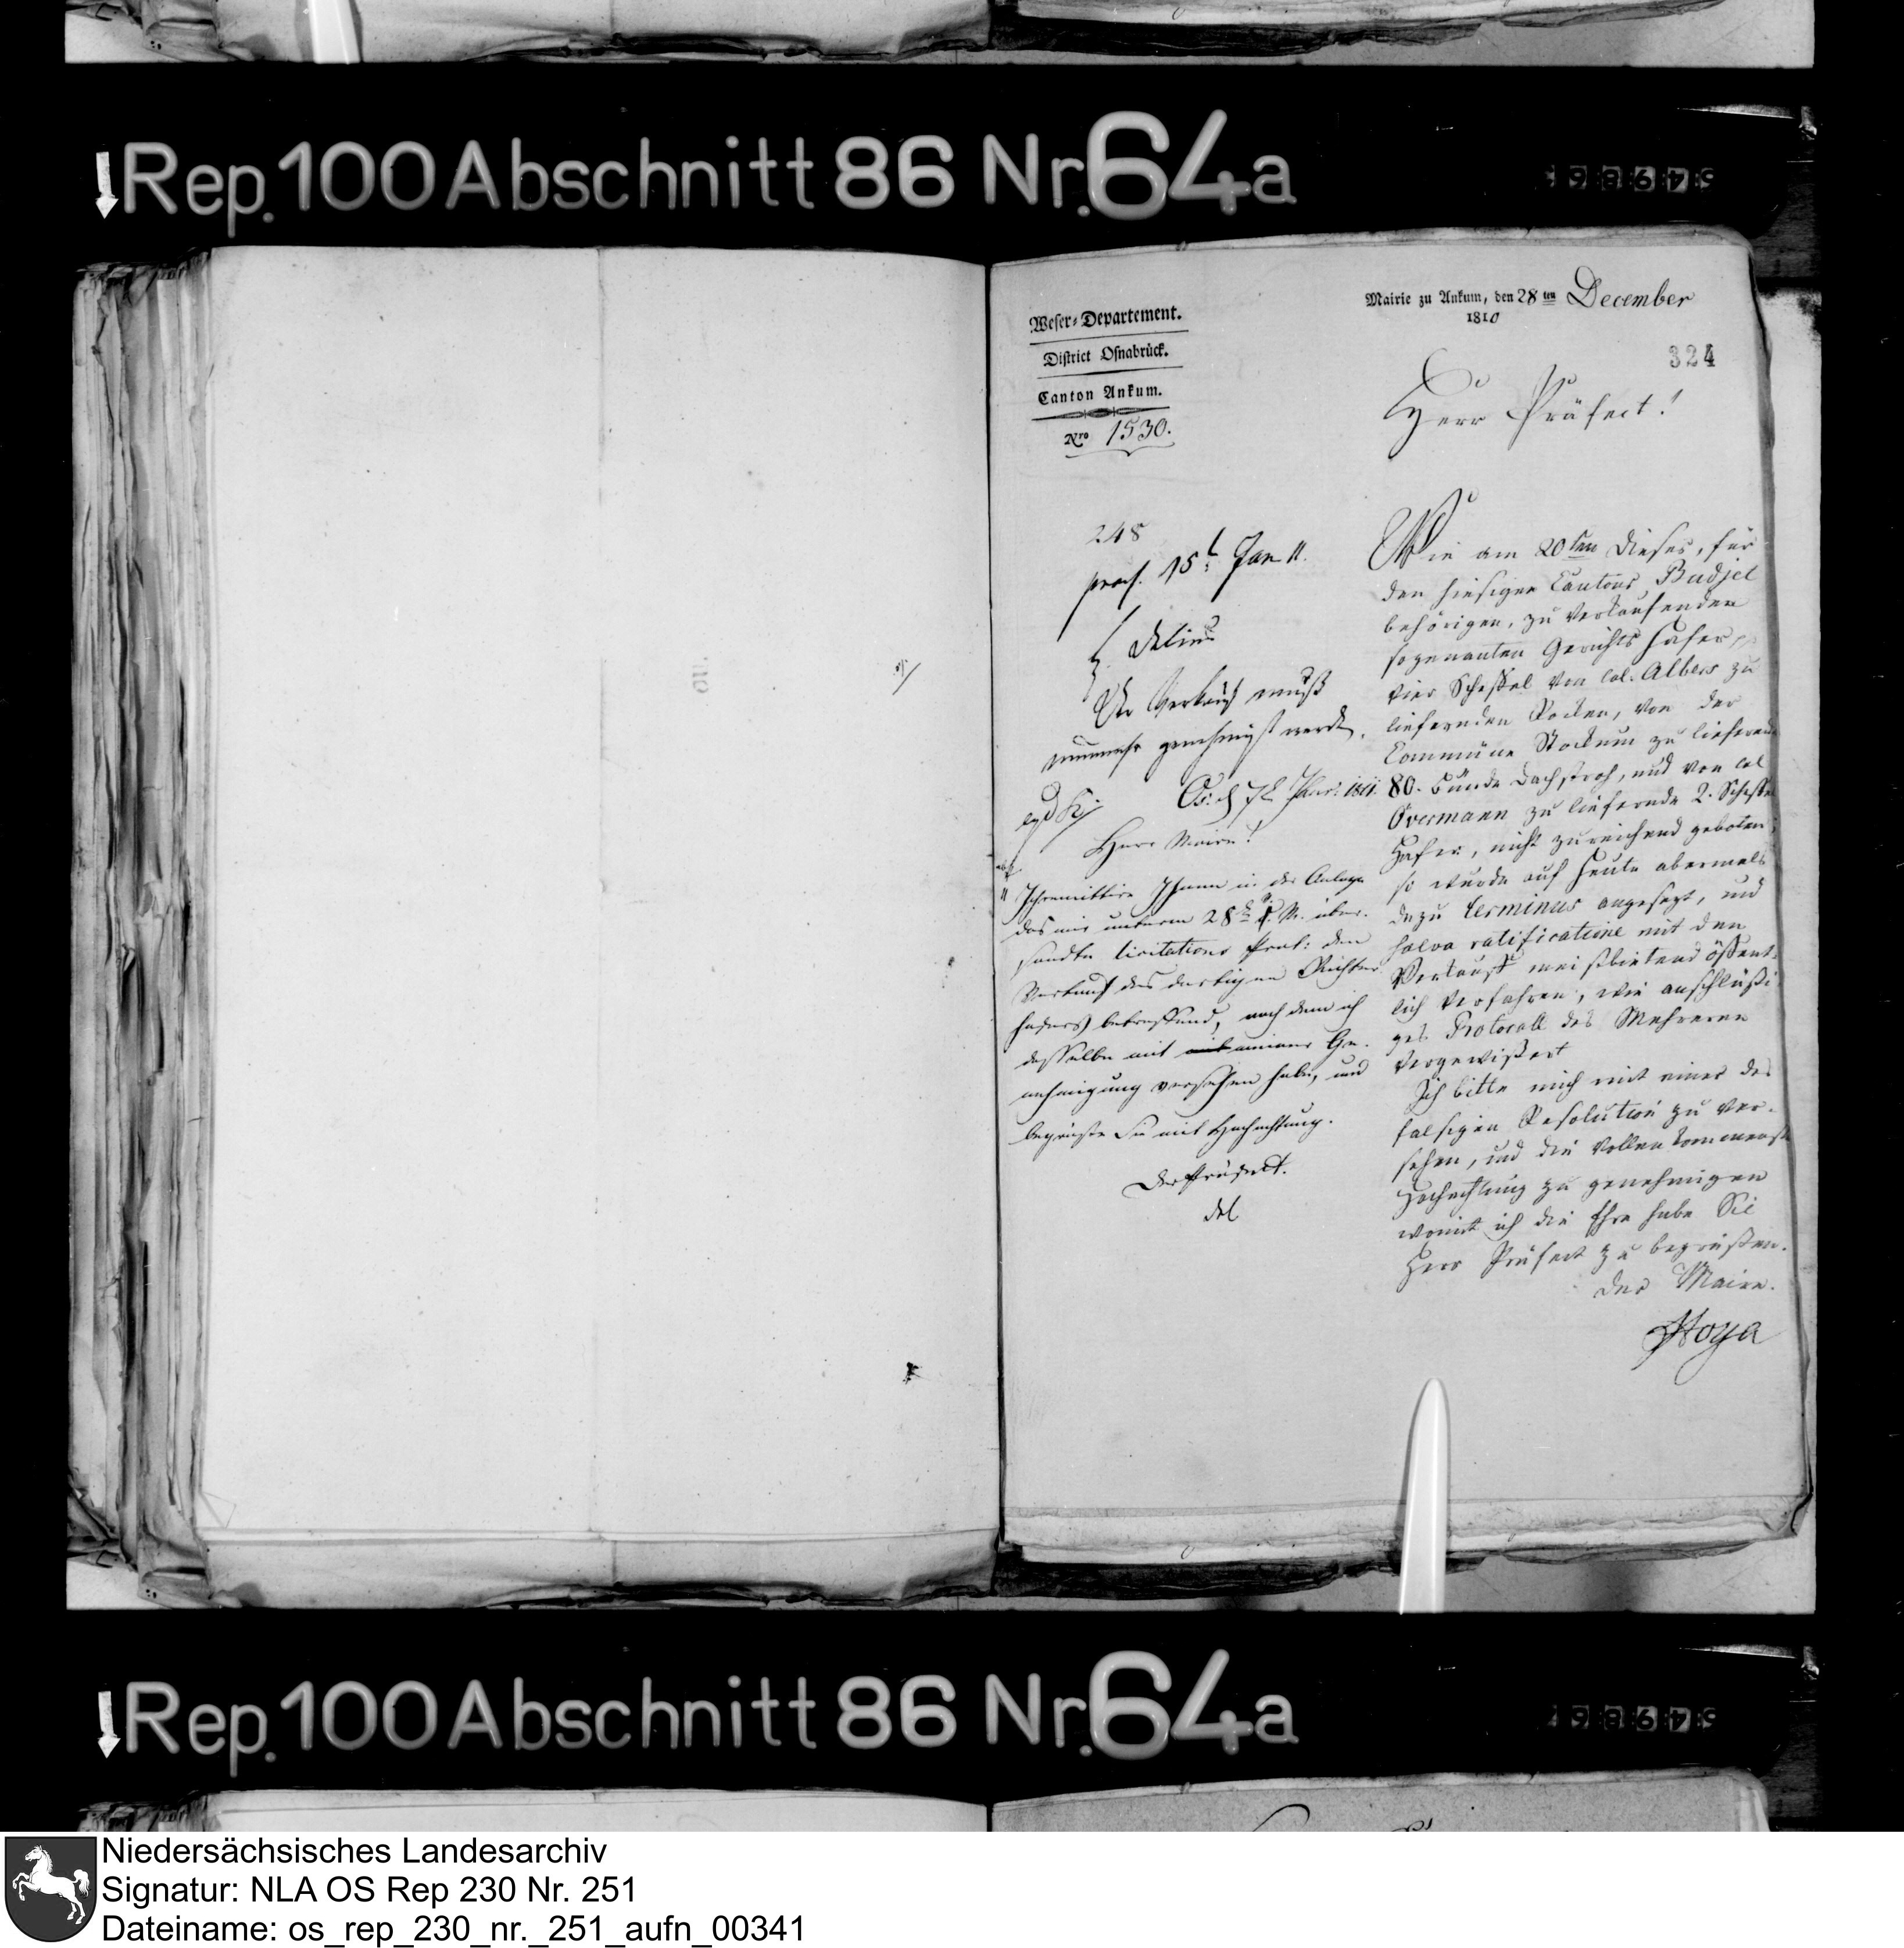 Rep. 100 Abschnitt 86 Nr. 64a
Weser-Departement.
District Osnabrück.
Canton Ankum.
Nro 1530.
Mairie zu Ankum, den 28 ten December
1810
324
Herr Präfect!
Wie am 20ten dieses, für
den hiesigen Cantons Budjet
behörigen, zu verkaufenden
sogenanten Gerichts Hafer,
vier Scheffel von Col. Albers zu
liefernden Rocken, von der
Commüne Stockum zu liefernde
80. Bünde Dachstroh, und von Col
Overmann zu liefernde 2. Scheffel
Hafer, nicht zureichend geboten;
so wurde auf heute abermals
dazu terminus angesezt, und
salva ratificatione mit den
Verkauf meistbietend öffent-
lich verfahren, wie anschlüßi-
ges Protocoll des Mehreren
vergewißert
Ich bitte mich mit einer des
falsigen Resolution zu ver-
sehen, und die vollenkommenste
Hochachtung zu genehmigen
womit ich die Ehre habe Sie
Herr Präfect zu begrüßen.
Der Maire.
Hoya
248
praes. 15t Jan 11.
Delius
Der Verkauf muß
nunmehr genehmigt werden.
Os. d 7t Janr. 1811.
Herr Maire!
Ihnen in der Anlage
das mir unterm 28t v. M. über-
sandte licitations Prot: den
Verkauf des dortigen Richter
hafers betreffend, nach dem ich
dasselbe mit meiner Ge-
nehmigung versehen habe, und
begrüße Sie mit Hochachtung.
Der Präfect.
Del
Rep. 100 Abschnitt 86 Nr. 64a
Niedersächsisches Landesarchiv
Signatur: NLA OS Rep 230 Nr. 251
Dateiname: os_rep_230_nr._251_aufn_00341